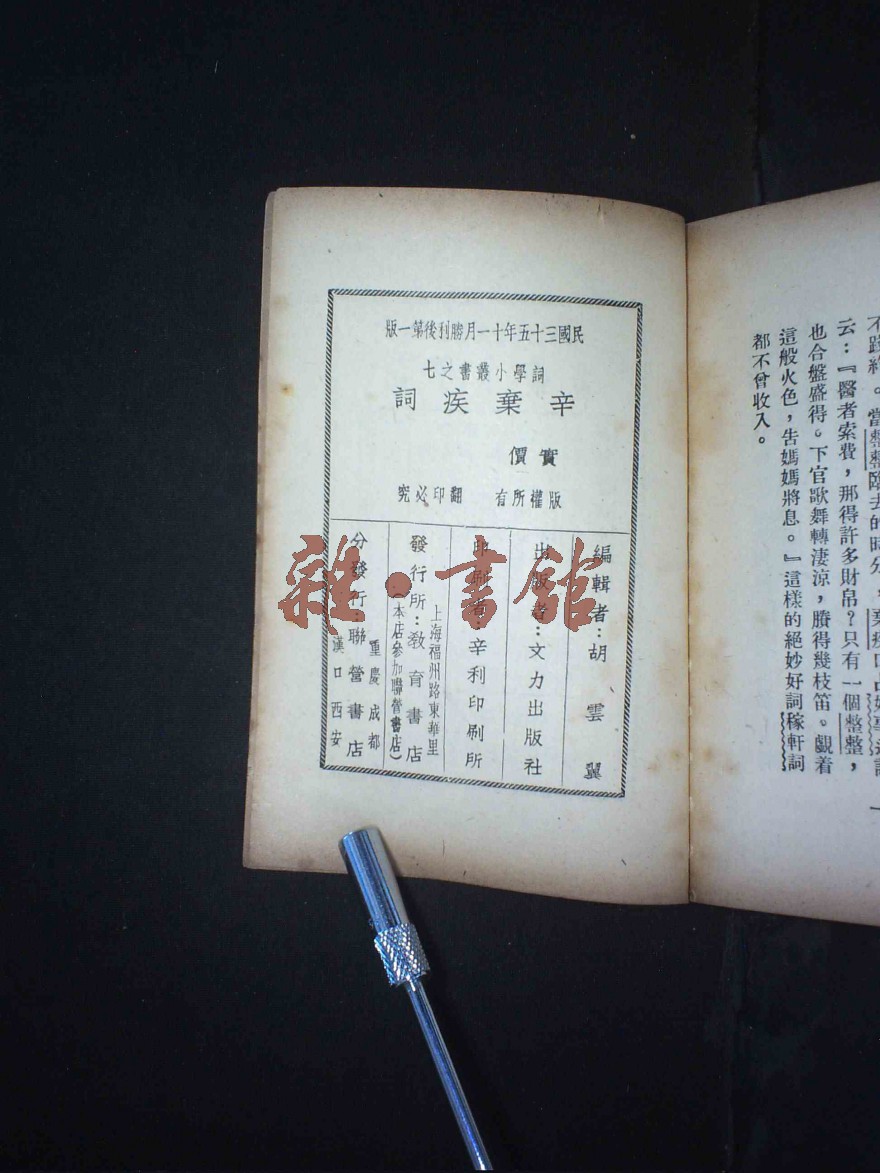 民國三十五年十一月勝利後第一版
詞學小叢書之七
辛棄疾詞
實價
版權所有 翻印必究
編輯者：胡雲翼
出版者：文力出版社
印刷者：辛利印刷所
上海福州路東華里
發行所：教育書店
（本店參加聯營書店）
重慶成都
分發行：聯營書店
漢口西安
雜·書館
云：『醫者索費，那得許多財帛？只有一個整整，
也合盤盛得。下官歌舞轉淒涼，賸得幾枝笛。覷着
這般火色，告媽媽將息。』這樣的絕妙好詞稼軒詞
都不曾收入。